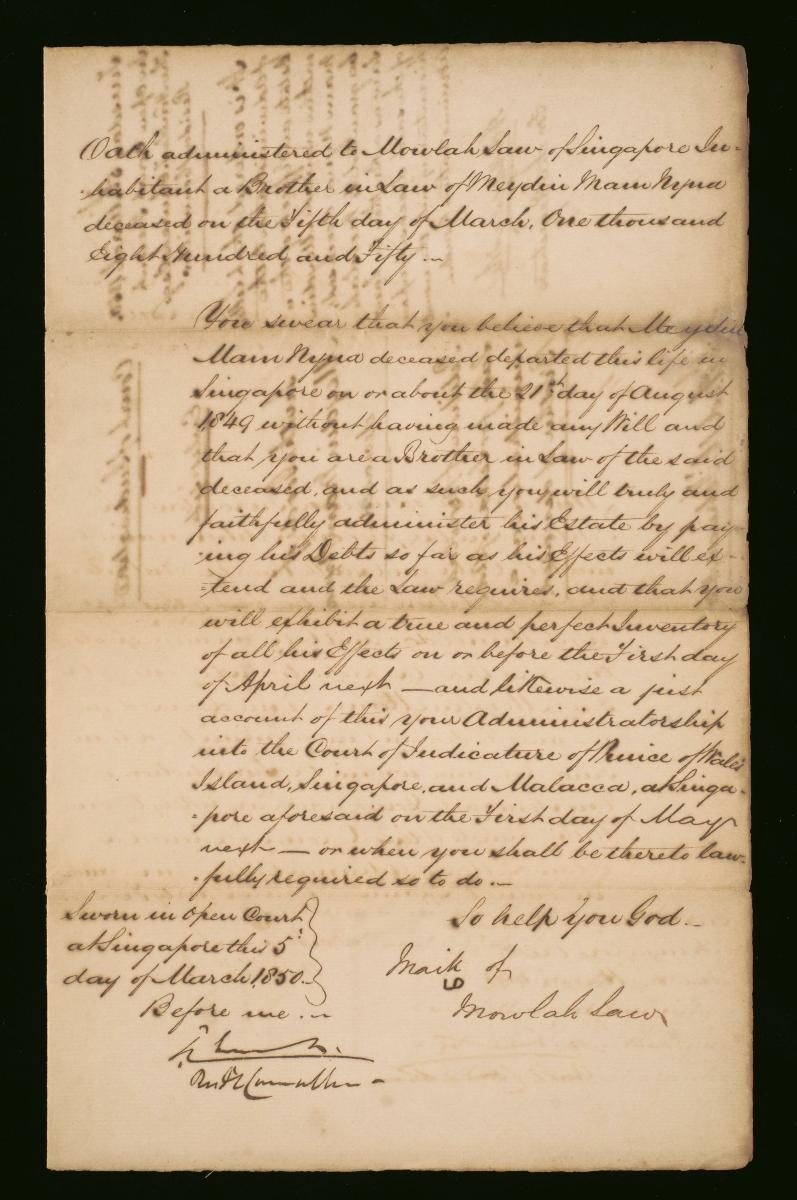 Oath administered to Mowlah Saw of Singapore In-
-habitant a Brother in Law of Meydin Mam Nyna
deceased on the Fifth day of March, One thousand
Eight Hundred, and Fifty.—
You swear that you believe that Meydin
Mam Nyna deceased departed this life in
Singapore on or about the 21st day of August
1849 without having made any Will and
that you are a Brother in Law of the said
deceased, and as such you will truly and
faithfully administer his Estate by pay-
-ing his Debts so far as his Effects will ex-
-tend and the Law requires, and that you
will exhibit a true and perfect Inventory
of all his Effects on or before the First day
of April next — and likewise a just
account of this your Administratorship
into the Court of Judicature of Prince of Wale's
Island, Singapore, and Malacca, at Singa-
-pore aforesaid on the First day of May
next — or when you shall be thereto law-
-fully required so to do.—
So help You God.—
Sworn in Open Court
at Singapore this 5th
day of March, 1850.—
Before me.—
Mark of
Mowlah Saw